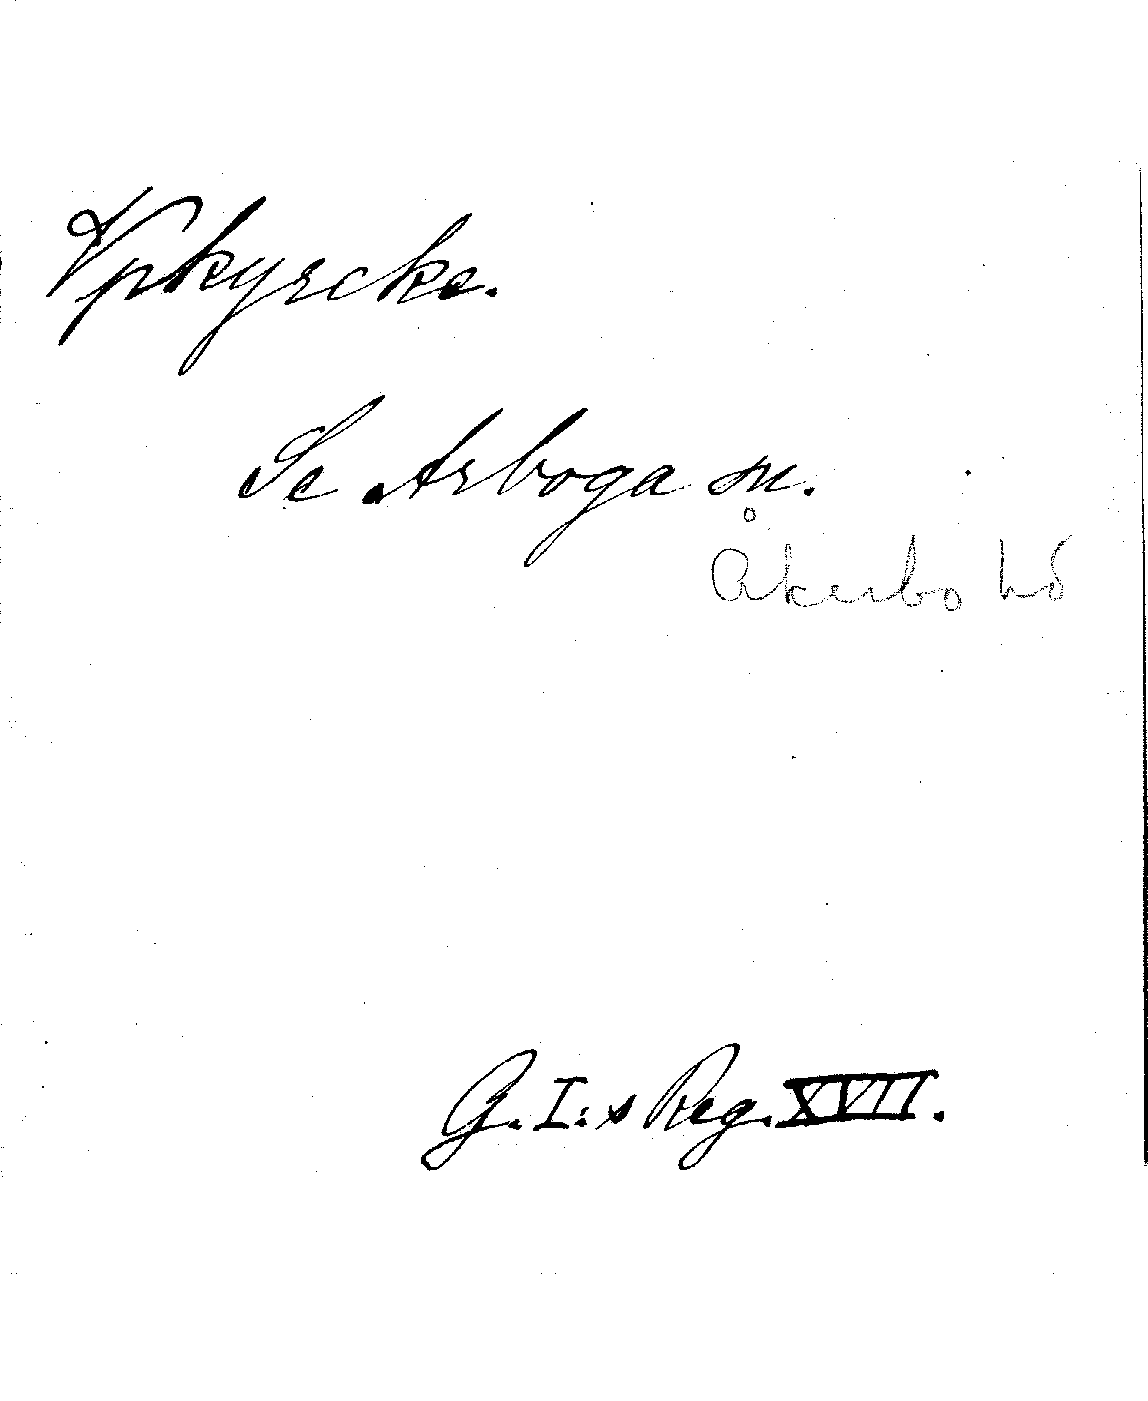 Vpkyrcke.
Se Arboga sn.
Åkerbo hd
G. I:s Reg. XVII.